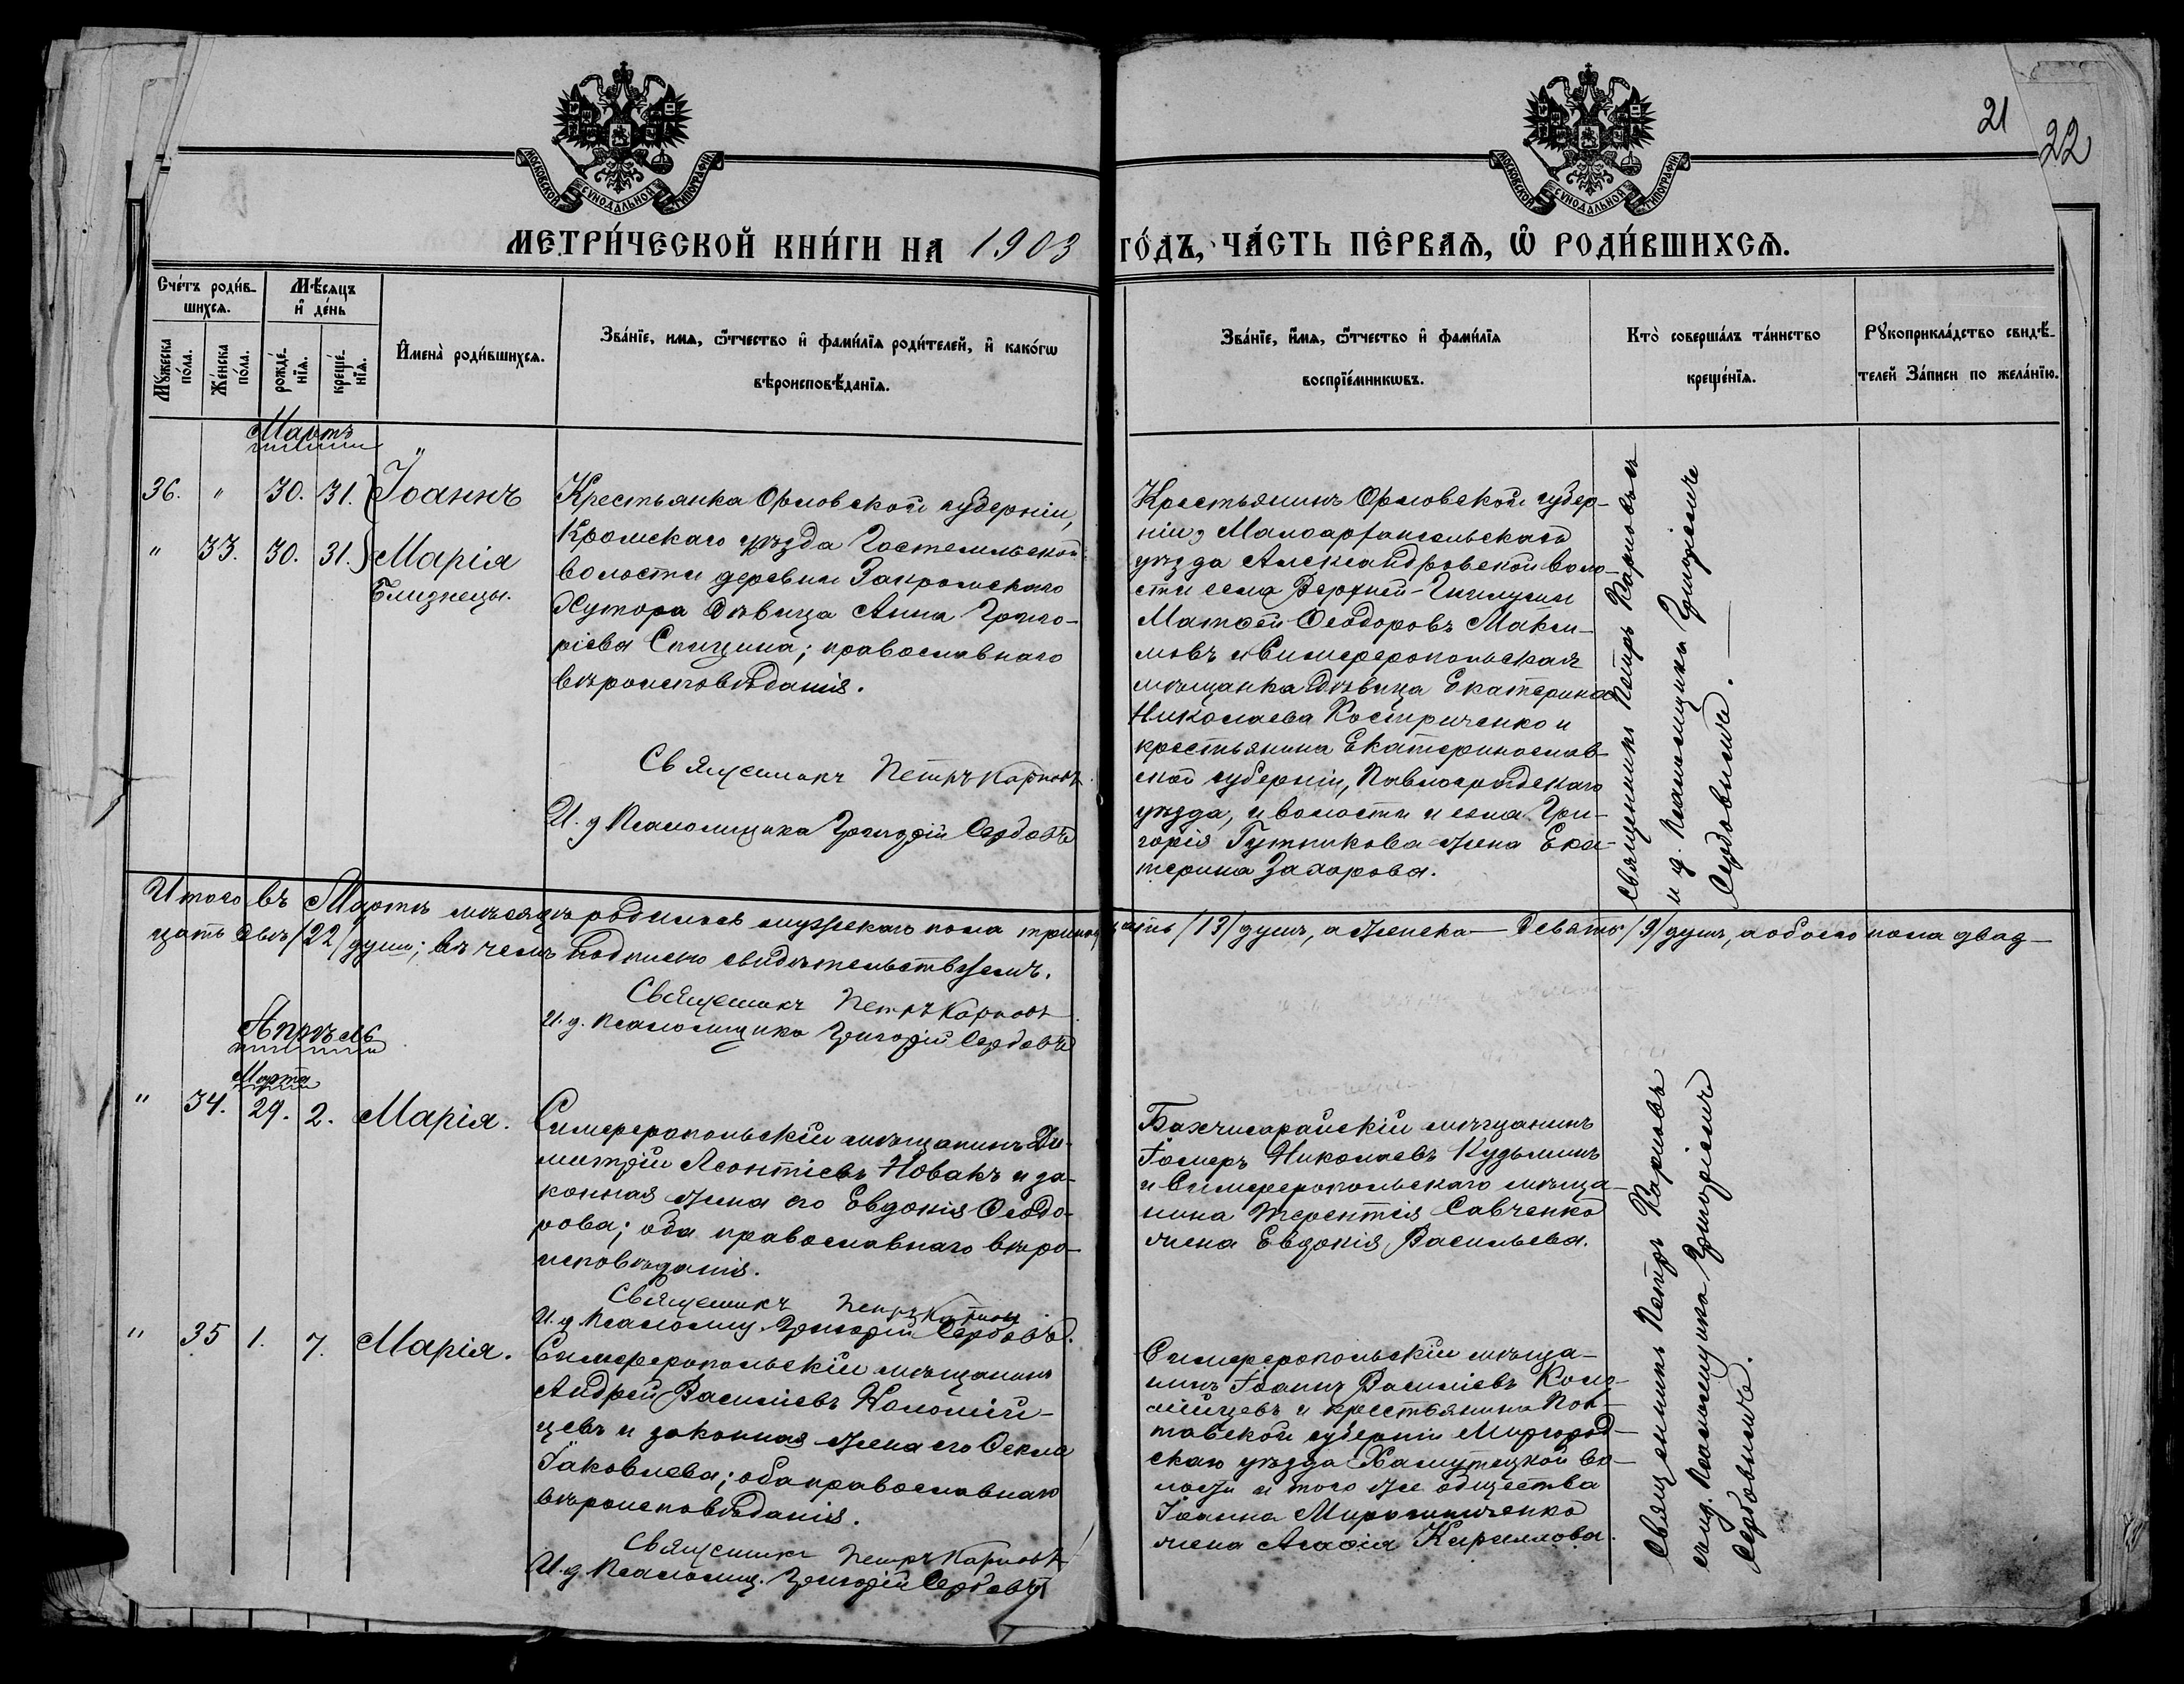 21
22
МОСКОВСКОЙ СѴНОДАЛЬНОЙ ТИПОГРАФІИ
МОСКОВСКОЙ СѴНОДАЛЬНОЙ ТИПОГРАФІИ
МЕТРИ́ЧЕСКОЙ КНИ́ГИ НА 1903
ГО́ДЪ, ЧА́СТЬ ПЕ́РВАѦ, Ѽ РОДИ́ВШИХСѦ.
Сче́тъ роди́в-
шихсѧ.
Мѣ́сѧцъ
и҆ де́нь
Мꙋ́жеска по́ла.
Же́нска по́ла.
рожде́-
нїѧ.
креще́-
нїѧ.
И҆мена̀ роди́вшихсѧ.
Зва́нїе, имѧ, ѻ҆́тчество и҆ фами́лїѧ роди́телей, и҆ како́гѡ
вѣроисповѣ́данїѧ.
Зва́нїе, и҆́мѧ, ѻ҆́тчество и҆ фами́лїѧ
воспрїе́мникѡвъ.
Кто̀ соверша́лъ та́инство
креще́нїѧ.
Рꙋкоприкла́дство свидѣ́-
телей За́писи по жела́нїю.
Мартъ
36. " 30. 31. Іоаннъ
" 33. 30. 31. Марія
Близнецы.
Крестьянка Орловской губерніи,
Кромскаго уѣзда Гостемльской
волости деревни Закромскаго
Хутора дѣвица Анна Григо-
ріева Спицина; православнаго
вѣроисповѣданія.
Священникъ Петръ Карповъ
И. д Псаломщика Григорій Сердовъ
Крестьянинъ Орловской губер-
ніи, Малоархангельскаго
уѣзда Александровской воло-
сти села Верхней-
Матѳей Ѳеодоровъ Макси-
мовъ и Симферопольская
мѣщанка дѣвица Екатерина
Николаева Костриченко и
крестьянина Екатеринослав-
ской губерніи, Павлоградскаго
уѣзда, и волости и села Гри-
горія Гутникова жена Ека-
терина Захарова.
Священникъ Петръ Карповъ съ
и д. Псаломщика Григоріемъ
Итого въ Мартѣ мѣсяцѣ родилось мужескаго пола тринадцать /13/ душъ, а женска — девять /9/ душъ, а обоего пола двад-
цать двѣ /22/ души; въ чемъ подписью свидѣтельствуемъ.
Священникъ Петръ Карповъ
И. д. Псаломщика Григорій Сердовъ
Апрѣль
Марта
" 34. 29. 2. Марія.
Симферопольскій мѣщанинъ Ди-
митрій Леонтіевъ Новакъ и за-
конная жена его Евдокія Ѳеодо-
рова; оба православнаго вѣро-
исповѣданія.
Священникъ Петръ Карповъ
И. д Псаломщ. Григорій Сердовъ.
Бахчисарайскій мѣщанинъ
Николаевъ Кудьминъ
и Симферопольскаго мѣща-
нина Терентія Савченко
жена Евдокія Васильева.
" 35 1. 7. Марія.
Симферопольскій мѣщанинъ
Андрей Василіевъ Коломій-
цевъ и законная жена его Ѳекла
Іаковлева; оба православнаго
вѣроисповѣданія.
Священникъ Петръ Карповъ
И. д Псаломщ. Григорій Сердовъ
Симферопольскій мѣща-
нинъ Іоаннъ Василіевъ Коло-
мійцевъ и крестьянина Пол-
тавской губерніи Миргород-
скаго уѣзда Хамутецкой во-
лости и того же общества
Іоанна Мирошниченко
жена Агаѳія Кириллова.
Священникъ Петръ Карповъ
съ ид. Псаломщика Григоріемъ